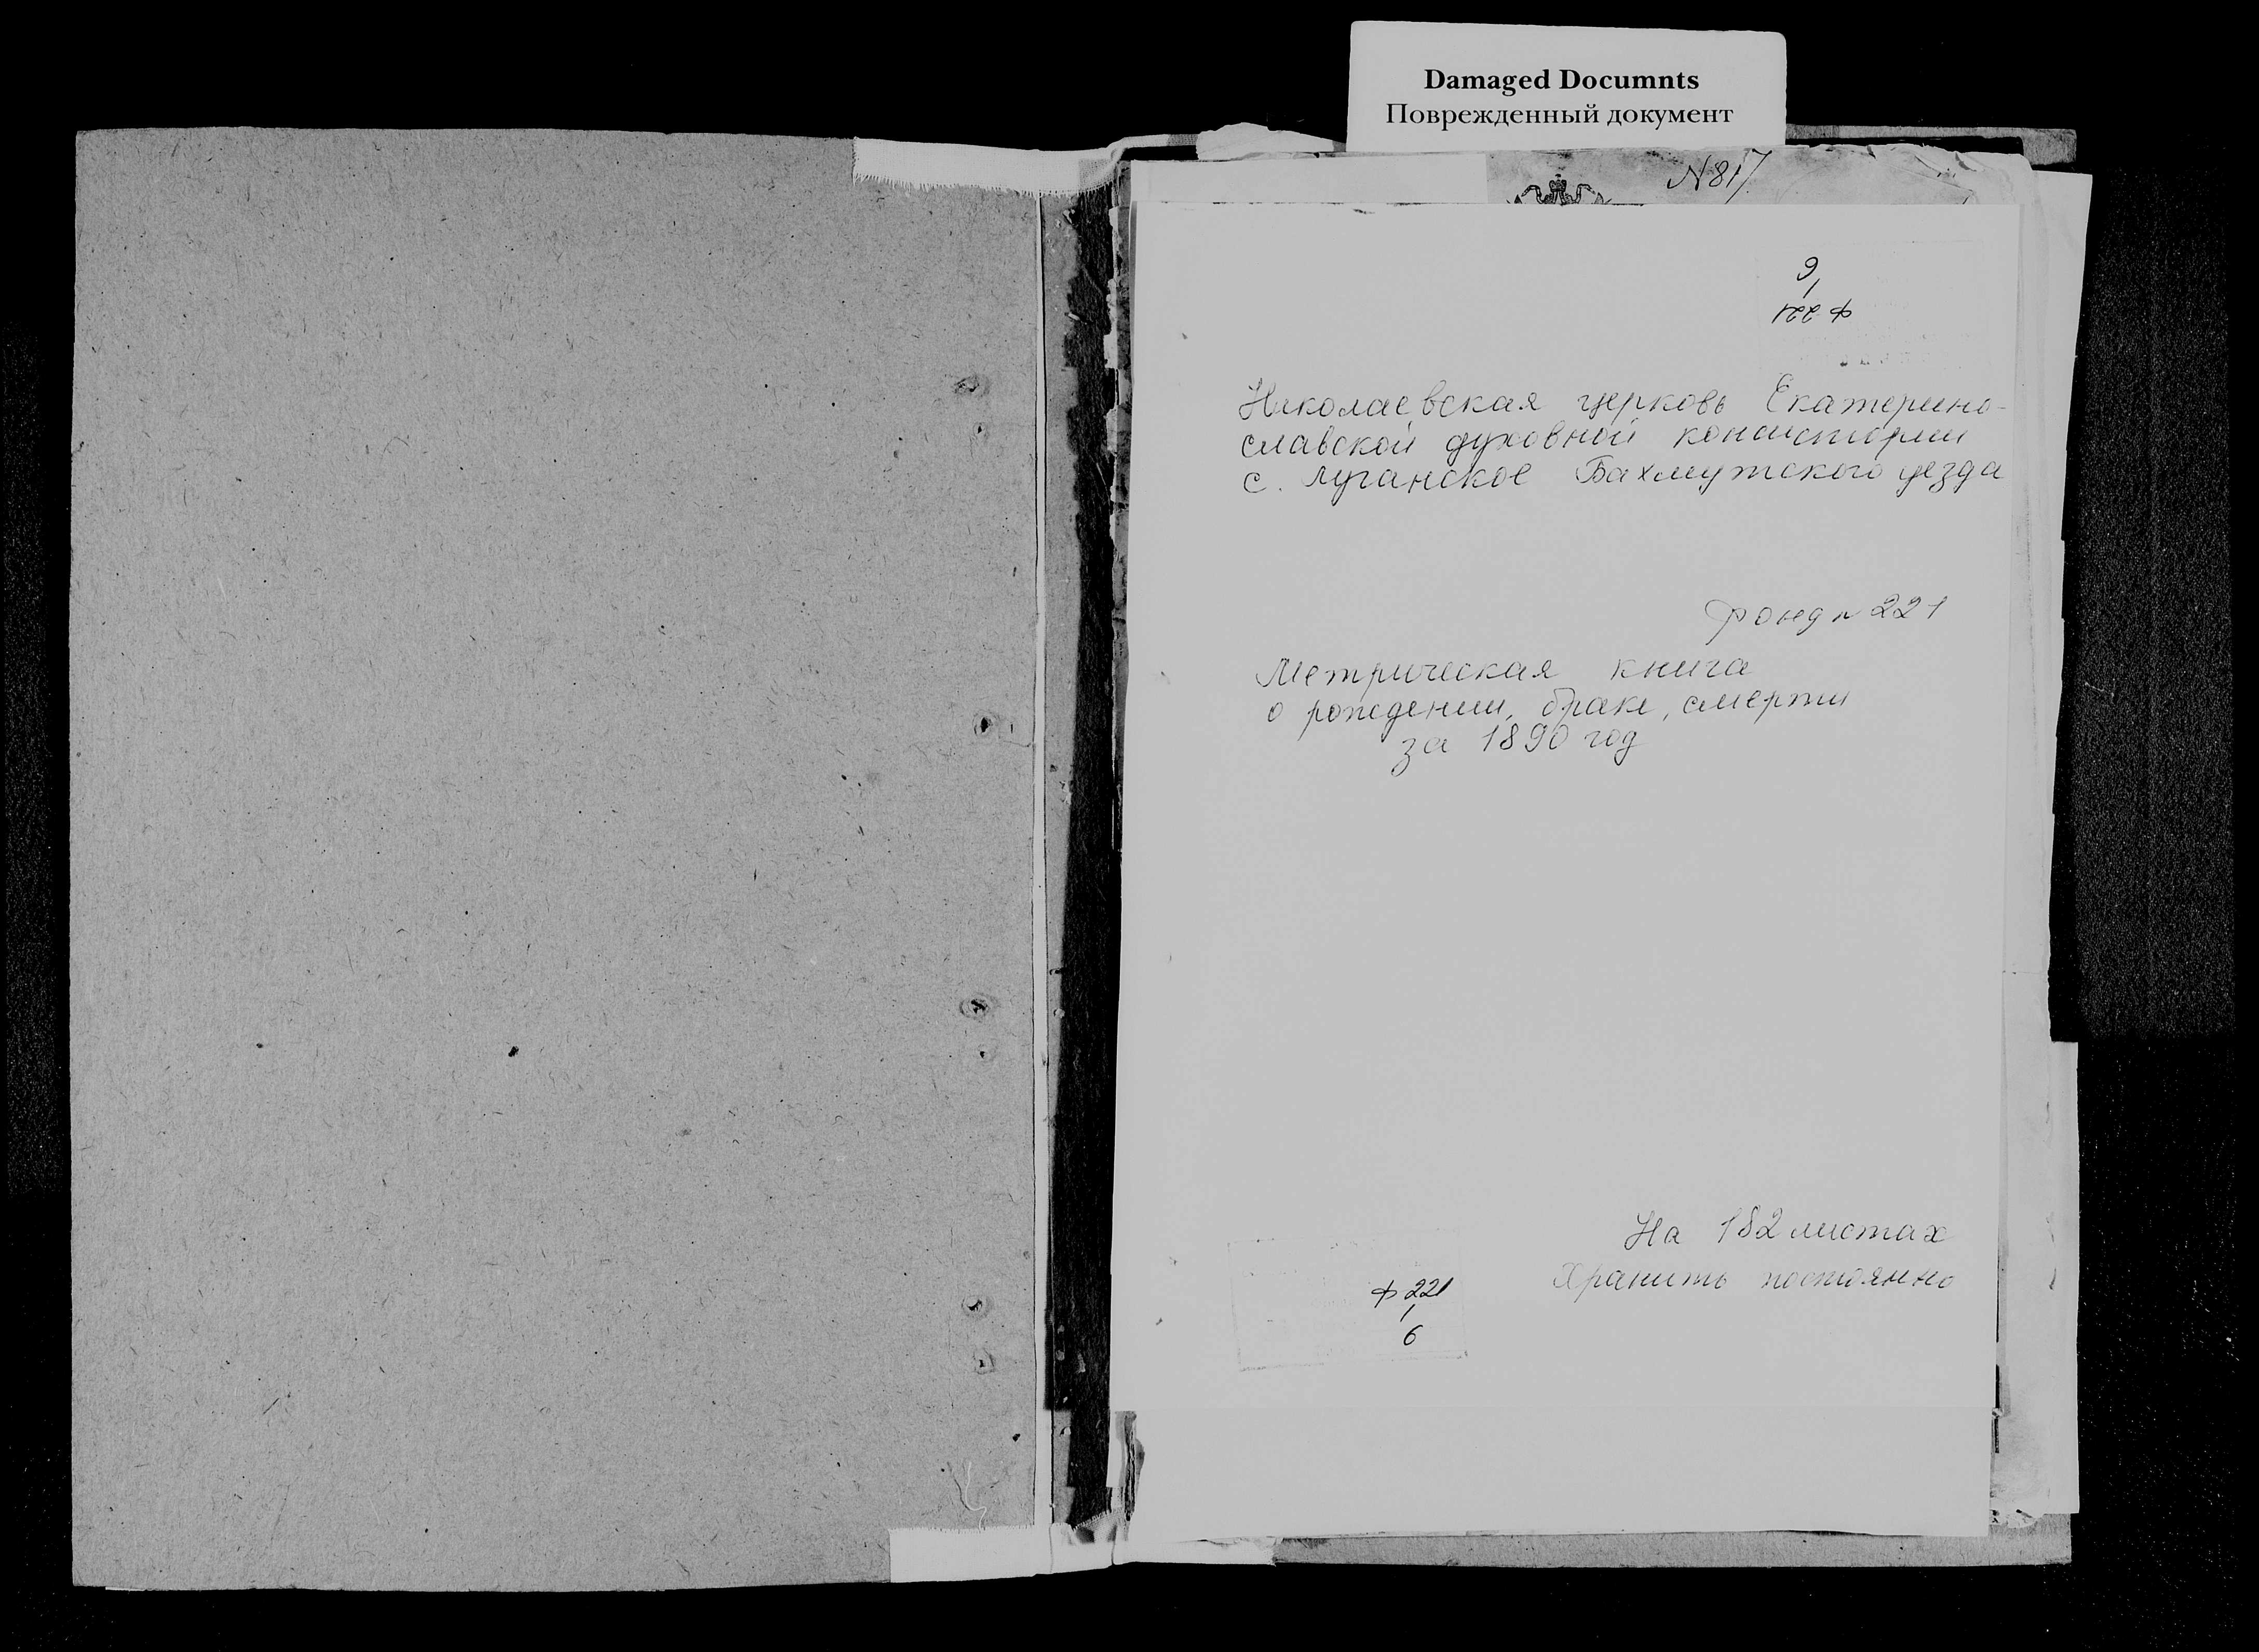 Damaged Documnts
Поврежденный документ
N 817
Ф 221
6
Николаевская церковь Екатерино-
славской духовной консистории
с. Луганское Бахмутского уезда
фонд N 221
Метрическая книга
о рождении, браке, смерти
за 1890 год
На 182 листах
Хранить постоянно
Ф 221
6